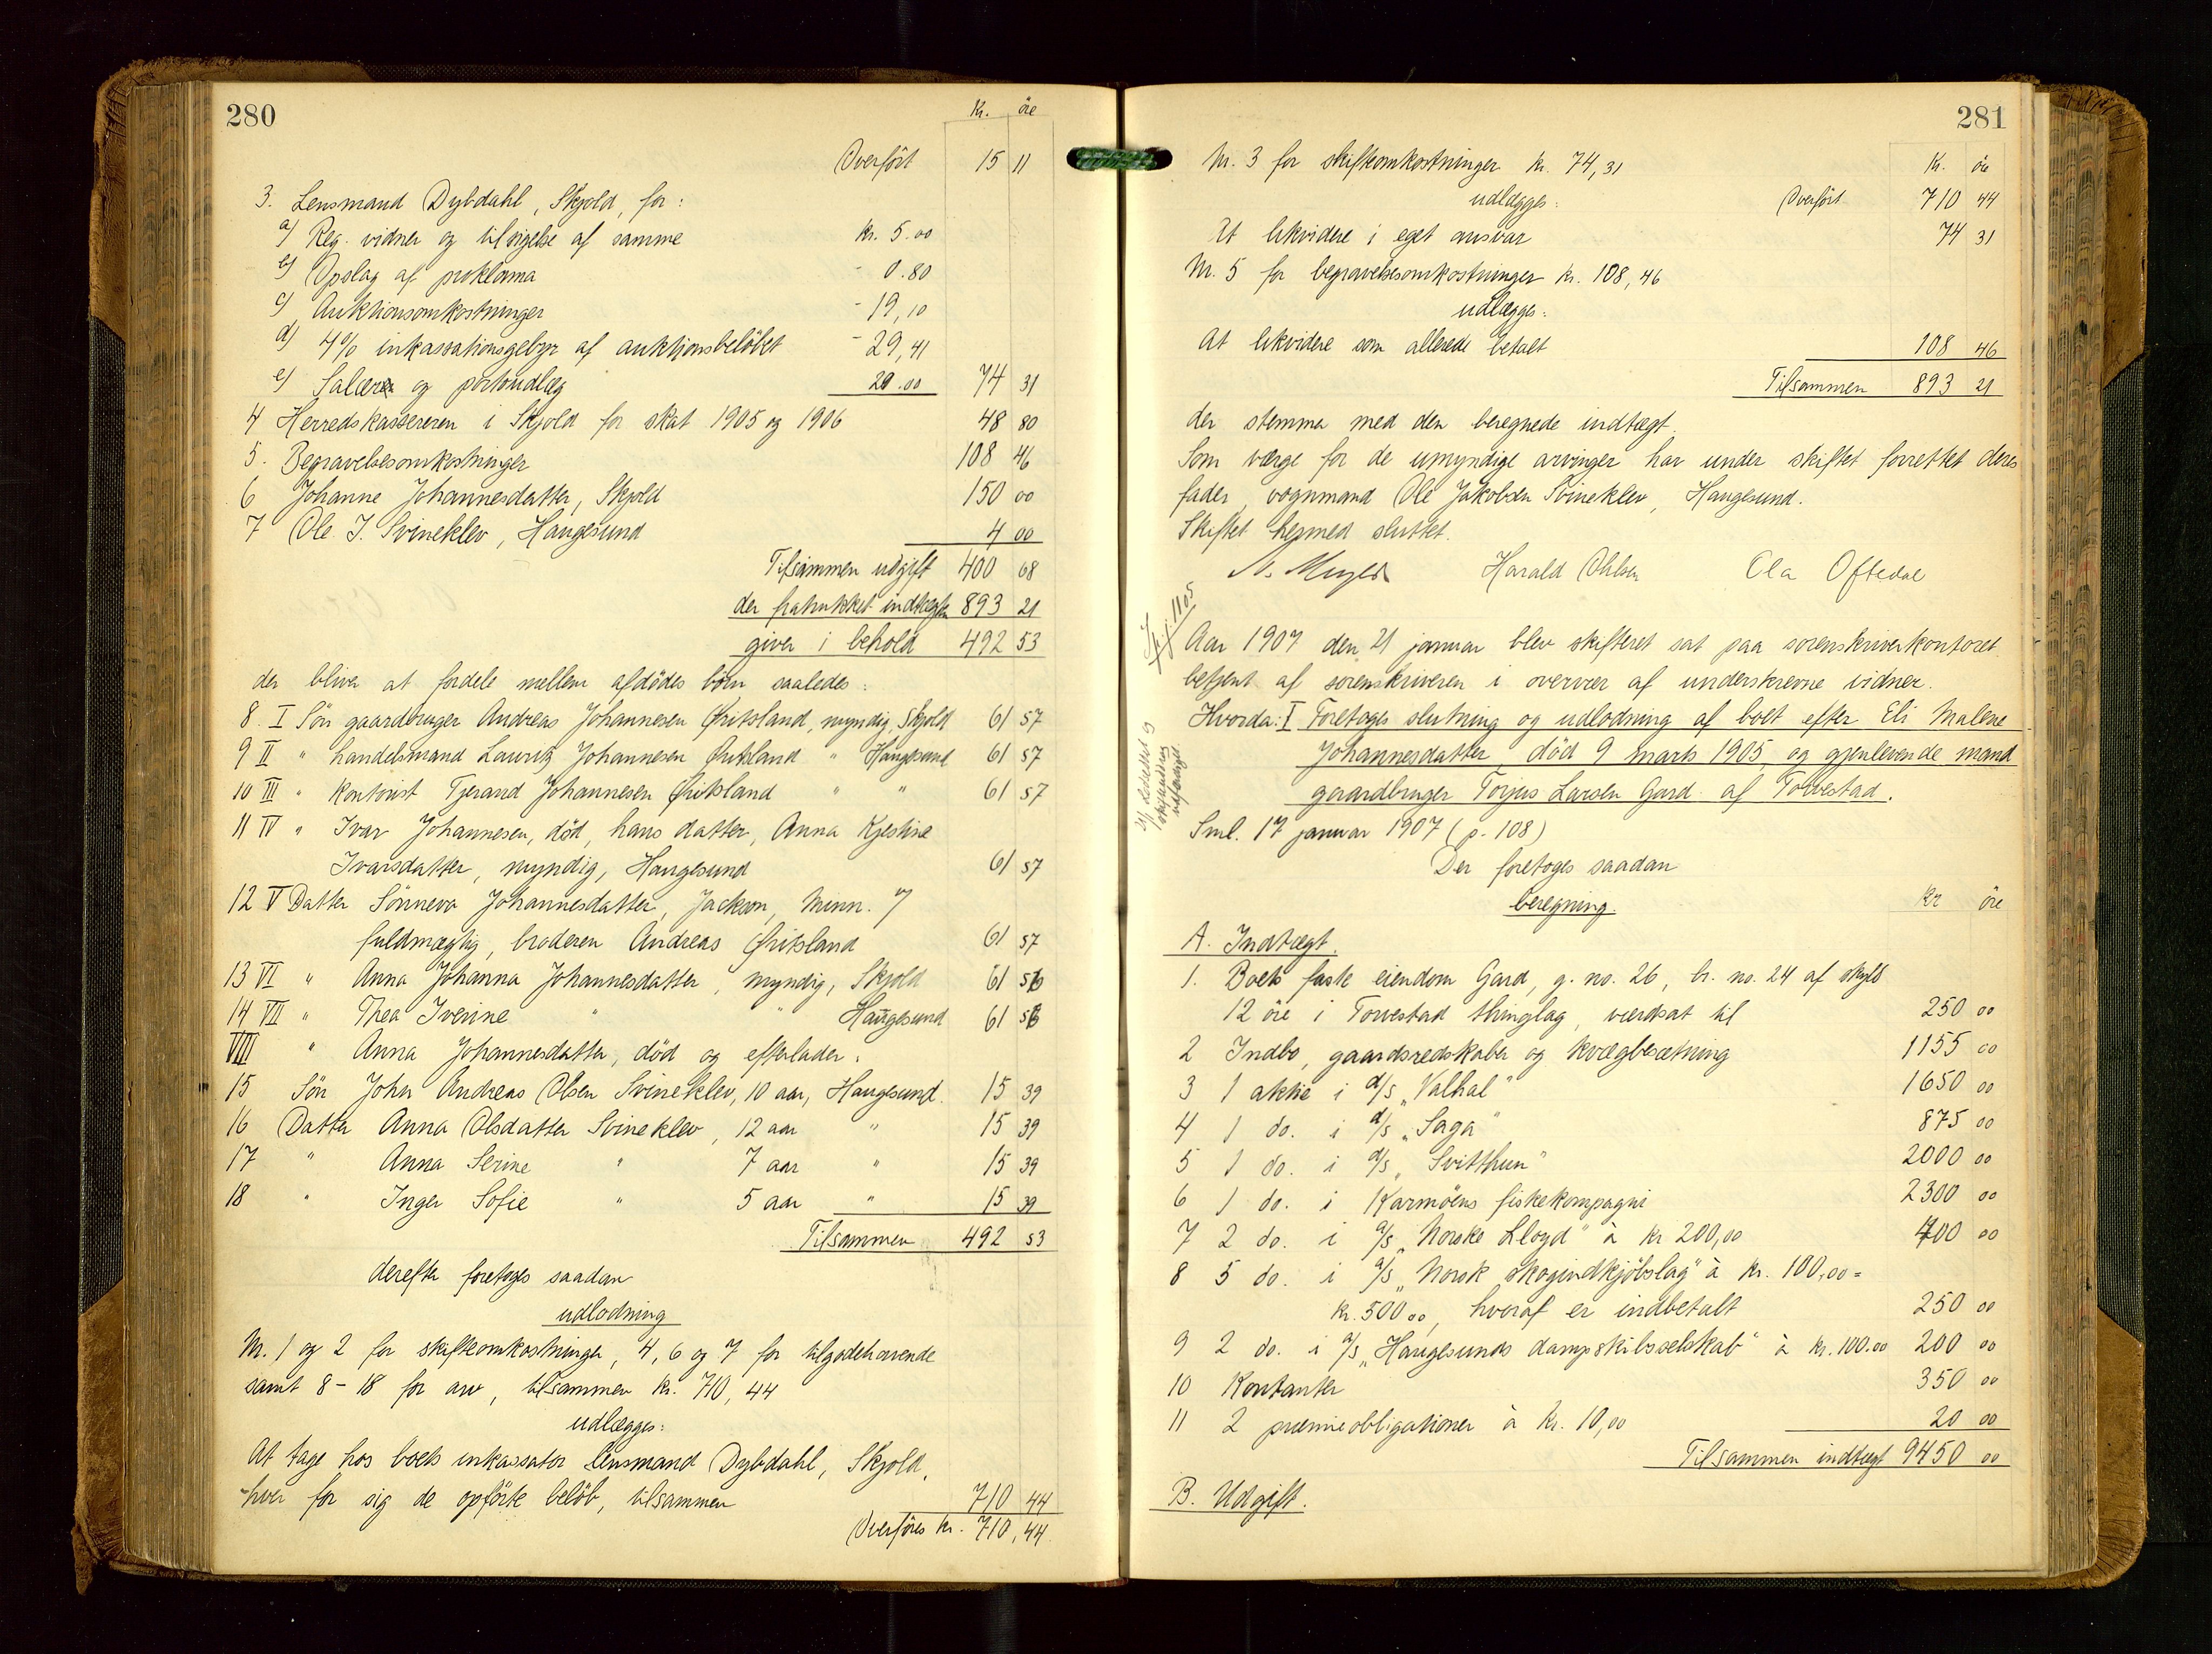 280
Kr. öre
Overfört 15 11
3. Lensmand Dybdahl, Skjold, for:
a) Reg. vidner og tilsigelse af samme kr. 5.00
b) Opslag af proklama - 0.80
c) Auktionsomkostninger - 19,10
d) 4% inkassationsgebyr af auktionsbelöbet - 29,41
e) Salær og portoudlæg 20.00 74 31
4 Herredskassereren i Skjold for skat 1905 og 1906 48 80
5. Begravelsesomkostninger 108 46
6 Johanne Johannesdatter, Skjold 150 00
7 Ole J. Svineklev, Haugesund 4 00
Tilsammen udgift 400 68
der fratrukket indtægten 893 21
giver i behold 492 53
der bliver at fordele mellem afdödes börn saaledes:
8. I Sön gaardbruger Andreas Johannesen Öritsland, myndig, Skjold 61 57
9 II " handelsmand Lauritz Johannesen Öritsland " Haugesund 61 57
10 III " kontorist Tjerand Johannesen Öritsland " " 61 57
11 IV " Ivar Johannesen, död, hans datter, Anna Kjestine
Ivarsdatter, myndig, Haugesund 61 57
12 V Datter Sönneva Johannesdatter, Jackson, Minn.
fuldmægtig, broderen Andreas Öritsland 61 57
13 VI " Anna Johanna Johannesdatter, myndig, Skjold 61 56
14 VII " Thea Iverine " " Haugesund 61 56
VIII " Anna Johannesdatter, död og efterlader:
15 Sön John Andreas Olsen Svineklev, 10 aar, Haugesund. 15 39
16 Datter Anna Olsdatter Svineklev, 12 aar " 15 39
17 " Anna Serine " 7 aar " 15 39
18 " Inger Sofie " 5 aar " 15 39
Tilsammen 492 53
derefter foretoges saadan
udlodning
Nr. 1 og 2 for skifteomkostninger, 4, 6 og 7 for tilgodehavende
samt 8-18 for arv, tilsammen kr. 710,44
udlægges:
At tage hos boets inkassator lensmand Dybdahl, Skjold,
hver for sig de opförte belöb, tilsammen 710 44
Overföres kr. 710,44
281
Nr. 3 for skifteomkostninger kr. 74,31 Kr. öre
udlægges: Overfört 710 44
At likvidere i eget ansvar 74 31
Nr. 5 for begravelsesomkostninger kr. 108,46
udlægges:
At likvidere som allerede betalt 108 46
Tilsammen 893 21
der stemmer med den beregnede indtægt.
Som værge for de umyndige arvinger har under skiftet forrettet deres
fader, vognmand Ole Jakobsen Svineklev, Haugesund.
Skiftet hermed sluttet.
Harald Ohlsen Ola Oftedal
Aar 1907 den 21 januar blev skifteret sat paa sorenskriverkontoret
betjent af sorenskriveren i overvær af underskrevne vidner.
Hvorda: I Foretoges slutning og udlodning af boet efter Eli Malene
Johannesdatter, död 9 marts 1905, og gjenlevende mand
gaardbruger Torjus Larsen Gard af Torvestad.
Sml. 17 januar 1907 (p. 108)
Der foretoges saadan
beregning. Kr öre
A. Indtægt.
1. Boets faste eiendom Gard, g. no. 26, br. no. 24 af skyld
12 öre i Torvestad thinglag, værdsat til 250 00
2 Indbo, gaardsredskaber og kvægbesætning 1155 00
3 1 aktie i d/s „Valhal" 1650 00
4 1 do. i d/s „Saga" 875 00
5 1 do. i d/s „Svitthun" 2000 00
6 1 do. i Karmöens fiskekompagni 2300 00
7 2 do. i a/s „Norske Lloyd" à kr 200,00 400 00
8 5 do. i a/s „Norsk skogindkjöbslag" à kr. 100,00 =
kr. 500 00, hvoraf er indbetalt 250 00
9 2 do. i a/s „Haugesunds dampskibsselskab" à kr. 100.00 200 00
10 Kontanter 350 00
11 2 præmieobligationer à kr. 10,00 20 00
Tilsammen indtægt 9450 00
B. Udgift.